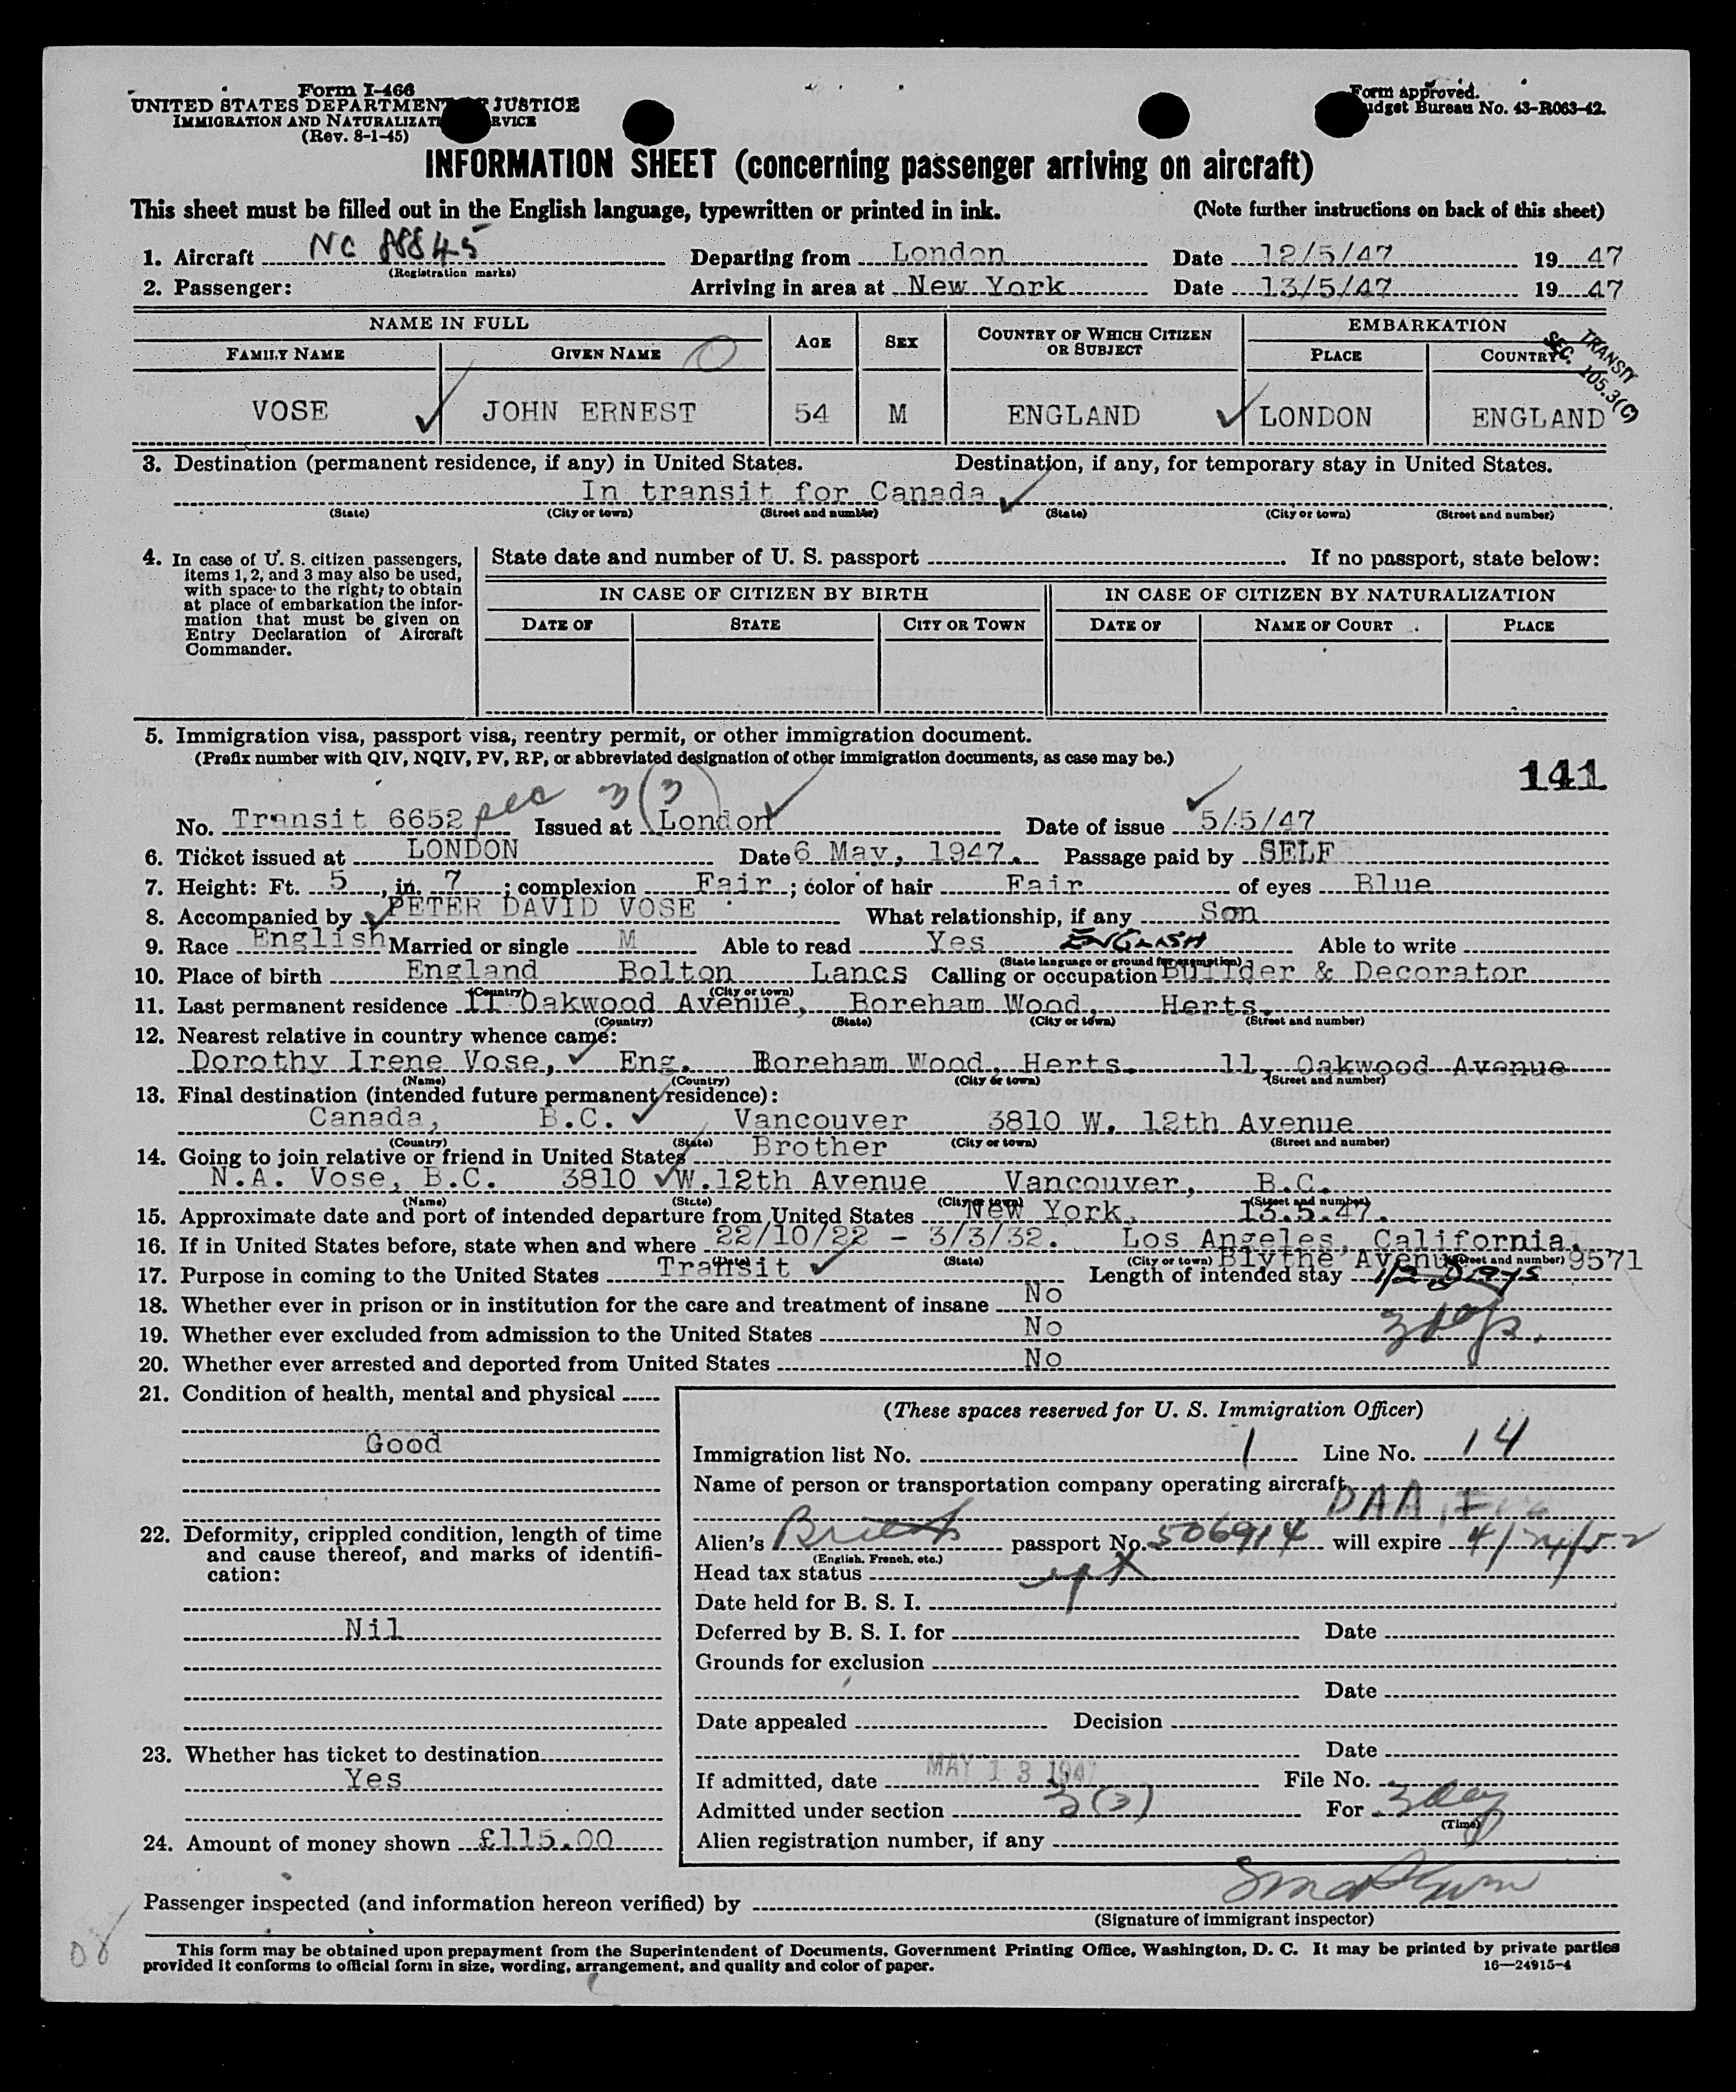 Form I-466
UNITED STATES DEPARTMENT JUSTICE
IMMIGRATION AND NATURALIZAT RVICE
(Rev. 8-1-45)
Form approved.
udget Bureau No. 43-R063-42.
INFORMATION SHEET (concerning passenger arriving on aircraft)
This sheet must be filled out in the English language, typewritten or printed in ink. (Note further instructions on back of this sheet)
1. Aircraft NC 88845 Departing from London Date 12/5/47 1947
(Registration marks)
2. Passenger: Arriving in area at New York Date 13/5/47 1947
NAME IN FULL AGE SEX COUNTRY OF WHICH CITIZEN OR SUBJECT EMBARKATION
FAMILY NAME GIVEN NAME PLACE COUNTRY
TRANSIT
SEC. 105.3(C)
VOSE JOHN ERNEST 54 M ENGLAND LONDON ENGLAND
3. Destination (permanent residence, if any) in United States. Destination, if any, for temporary stay in United States.
In transit for Canada
(State) (City or town) (Street and number) (State) (City or town) (Street and number)
4. In case of U. S. citizen passengers,
items 1, 2, and 3 may also be used,
with space to the right, to obtain
at place of embarkation the infor-
mation that must be given on
Entry Declaration of Aircraft
Commander.
State date and number of U. S. passport If no passport, state below:
IN CASE OF CITIZEN BY BIRTH IN CASE OF CITIZEN BY NATURALIZATION
DATE OF STATE CITY OR TOWN DATE OF NAME OF COURT PLACE
5. Immigration visa, passport visa, reentry permit, or other immigration document.
(Prefix number with QIV, NQIV, PV, RP, or abbreviated designation of other immigration documents, as case may be.)
141
No. Transit 6652 sec 3(3) Issued at London Date of issue 5/5/47
6. Ticket issued at LONDON Date 6 May, 1947. Passage paid by SELF
7. Height: Ft. 5, in. 7; complexion Fair; color of hair Fair of eyes Blue
8. Accompanied by PETER DAVID VOSE What relationship, if any Son
9. Race English Married or single M Able to read Yes ENGLISH Able to write
(State language or ground for exemption)
10. Place of birth England Bolton Lancs Calling or occupation Builder & Decorator
(Country) (City or town)
11. Last permanent residence 11 Oakwood Avenue, Boreham Wood, Herts.
(Country) (State) (City or town) (Street and number)
12. Nearest relative in country whence came:
Dorothy Irene Vose, Eng. Boreham Wood, Herts. 11, Oakwood Avenue
(Name) (Country) (City or town) (Street and number)
13. Final destination (intended future permanent residence):
Canada, B.C. Vancouver 3810 W. 12th Avenue
(Country) (State) (City or town) (Street and number)
14. Going to join relative or friend in United States Brother
N.A. Vose, B.C. 3810 W.12th Avenue Vancouver, B.C.
(Name) (State) (City or town) (Street and number)
15. Approximate date and port of intended departure from United States New York, 13.5.47.
16. If in United States before, state when and where 22/10/22 - 3/3/32. Los Angeles, California,
(Date) (State) (City or town) Blythe Avenue (Street and number) 9571
17. Purpose in coming to the United States Transit Length of intended stay 1/2 DAYS
18. Whether ever in prison or in institution for the care and treatment of insane No
3 days.
19. Whether ever excluded from admission to the United States No
20. Whether ever arrested and deported from United States No
21. Condition of health, mental and physical
Good
22. Deformity, crippled condition, length of time
and cause thereof, and marks of identifi-
cation:
Nil
23. Whether has ticket to destination
Yes
24. Amount of money shown £115.00
(These spaces reserved for U. S. Immigration Officer)
Immigration list No. 1 Line No. 14
Name of person or transportation company operating aircraft
Alien's British passport No. 506914 will expire
(English, French, etc.)
Head tax status
Date held for B. S. I.
Deferred by B. S. I. for Date
Grounds for exclusion
Date
Date appealed Decision
Date
If admitted, date MAY 13 1947 File No.
Admitted under section 3(3) For 3 day
(Time)
Alien registration number, if any
Passenger inspected (and information hereon verified) by
(Signature of immigrant inspector)
This form may be obtained upon prepayment from the Superintendent of Documents, Government Printing Office, Washington, D. C. It may be printed by private parties
provided it conforms to official form in size, wording, arrangement, and quality and color of paper.
16—24915-4